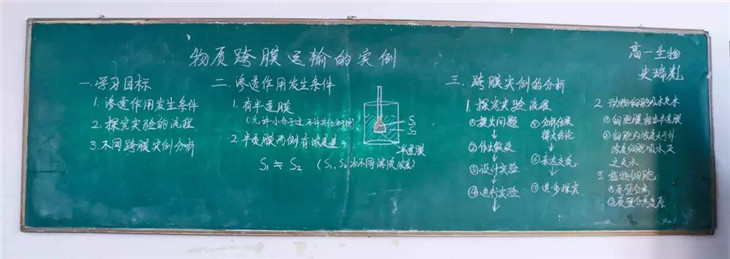 物质跨膜运输的实例
高一生物
一.学习目标
1.渗透作用发生条件
2.探究实验的流程
3.不同跨膜实例分析
二.渗透作用发生条件
1.有半透膜
2.半透膜两侧有浓度差
S₁ ≒ S₂ (S₁, S₂为不同溶液浓度)
S₁
S₂
半透膜
三.跨膜实例的分析
1.探究实验流程
①提出问题
②作出假设
③设计实验
④进行实验
⑤分析结果
得出结论
⑥表达交流
⑦进步探究
2.动物细胞吸水失水
①细胞膜相当半透膜
3.植物细胞:
①原生质层